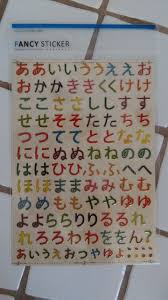 FANCY STICKER
ああいいううええお
おかかききくくけけ
ここささししすす
せせそそたたちち
つつててととなな
ににぬぬねねのの
ははひひふふへへ
ほほままみみむむ
めめももややゆゆ
よよららりりるる
れろろわわをん?